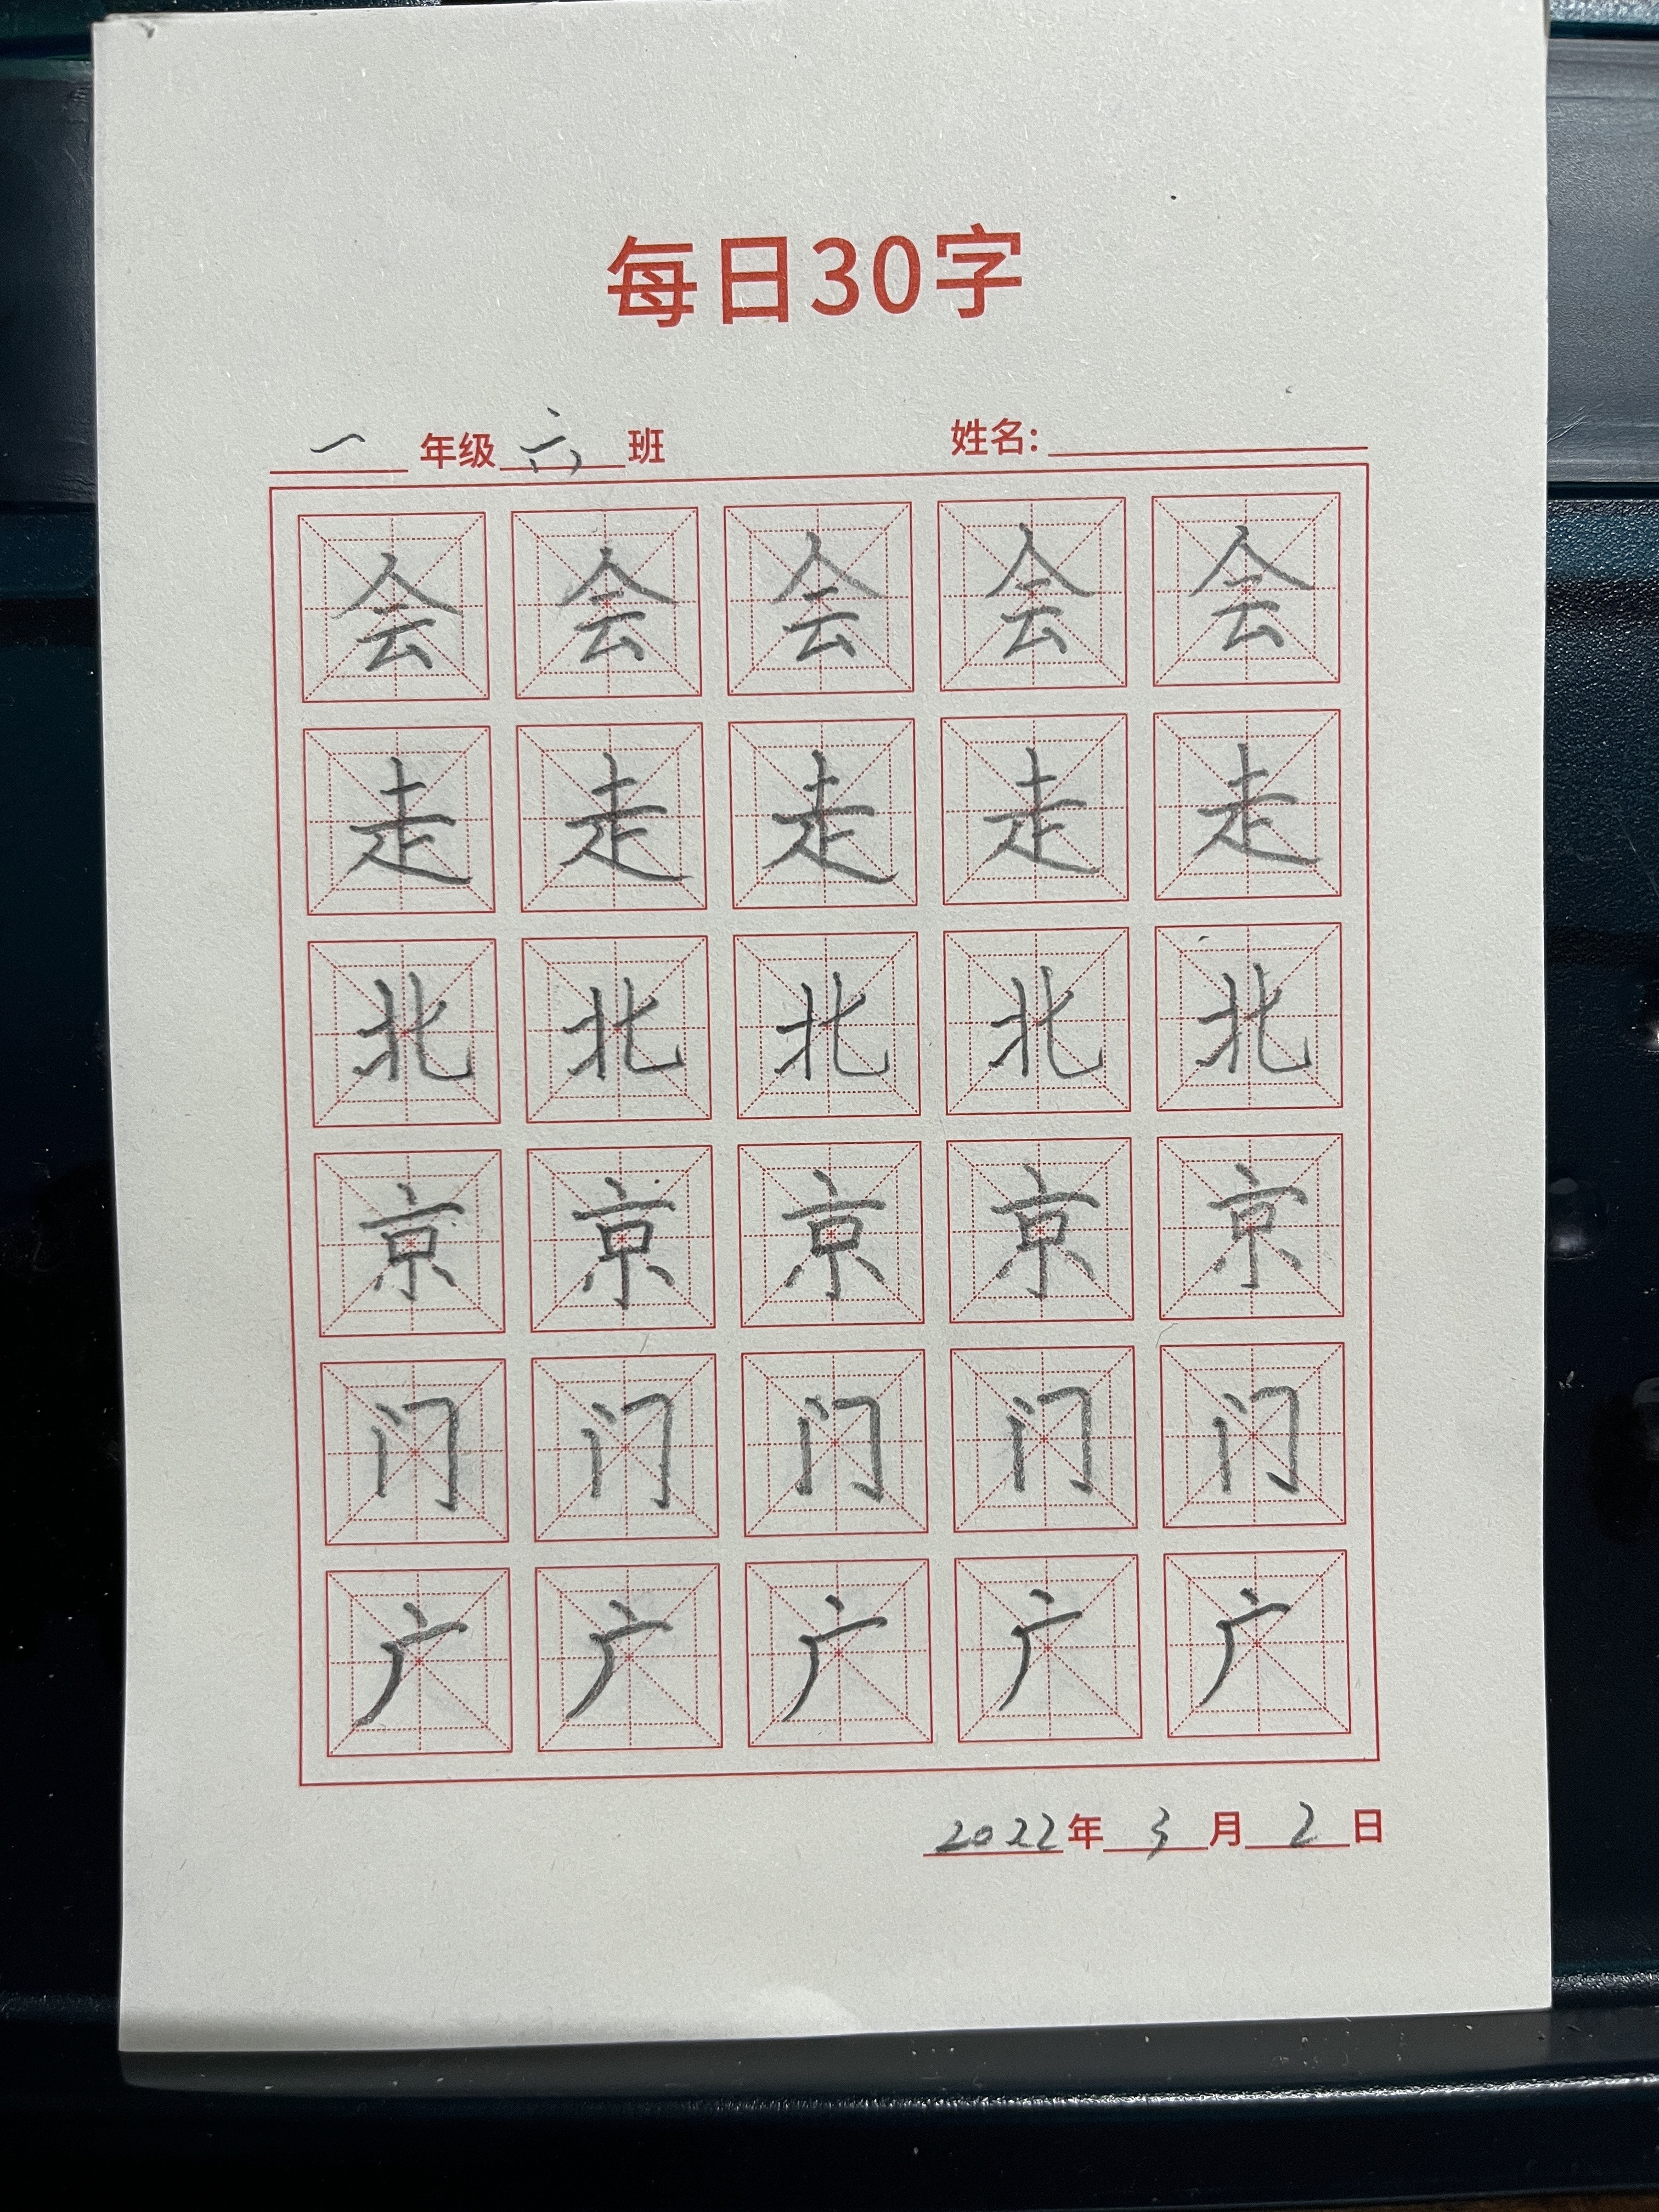 每日30字
一年级六班 姓名:
会会会会会
走走走走走
北北北北北
京京京京京
门门门门门
广广广广广
2022年3月2日